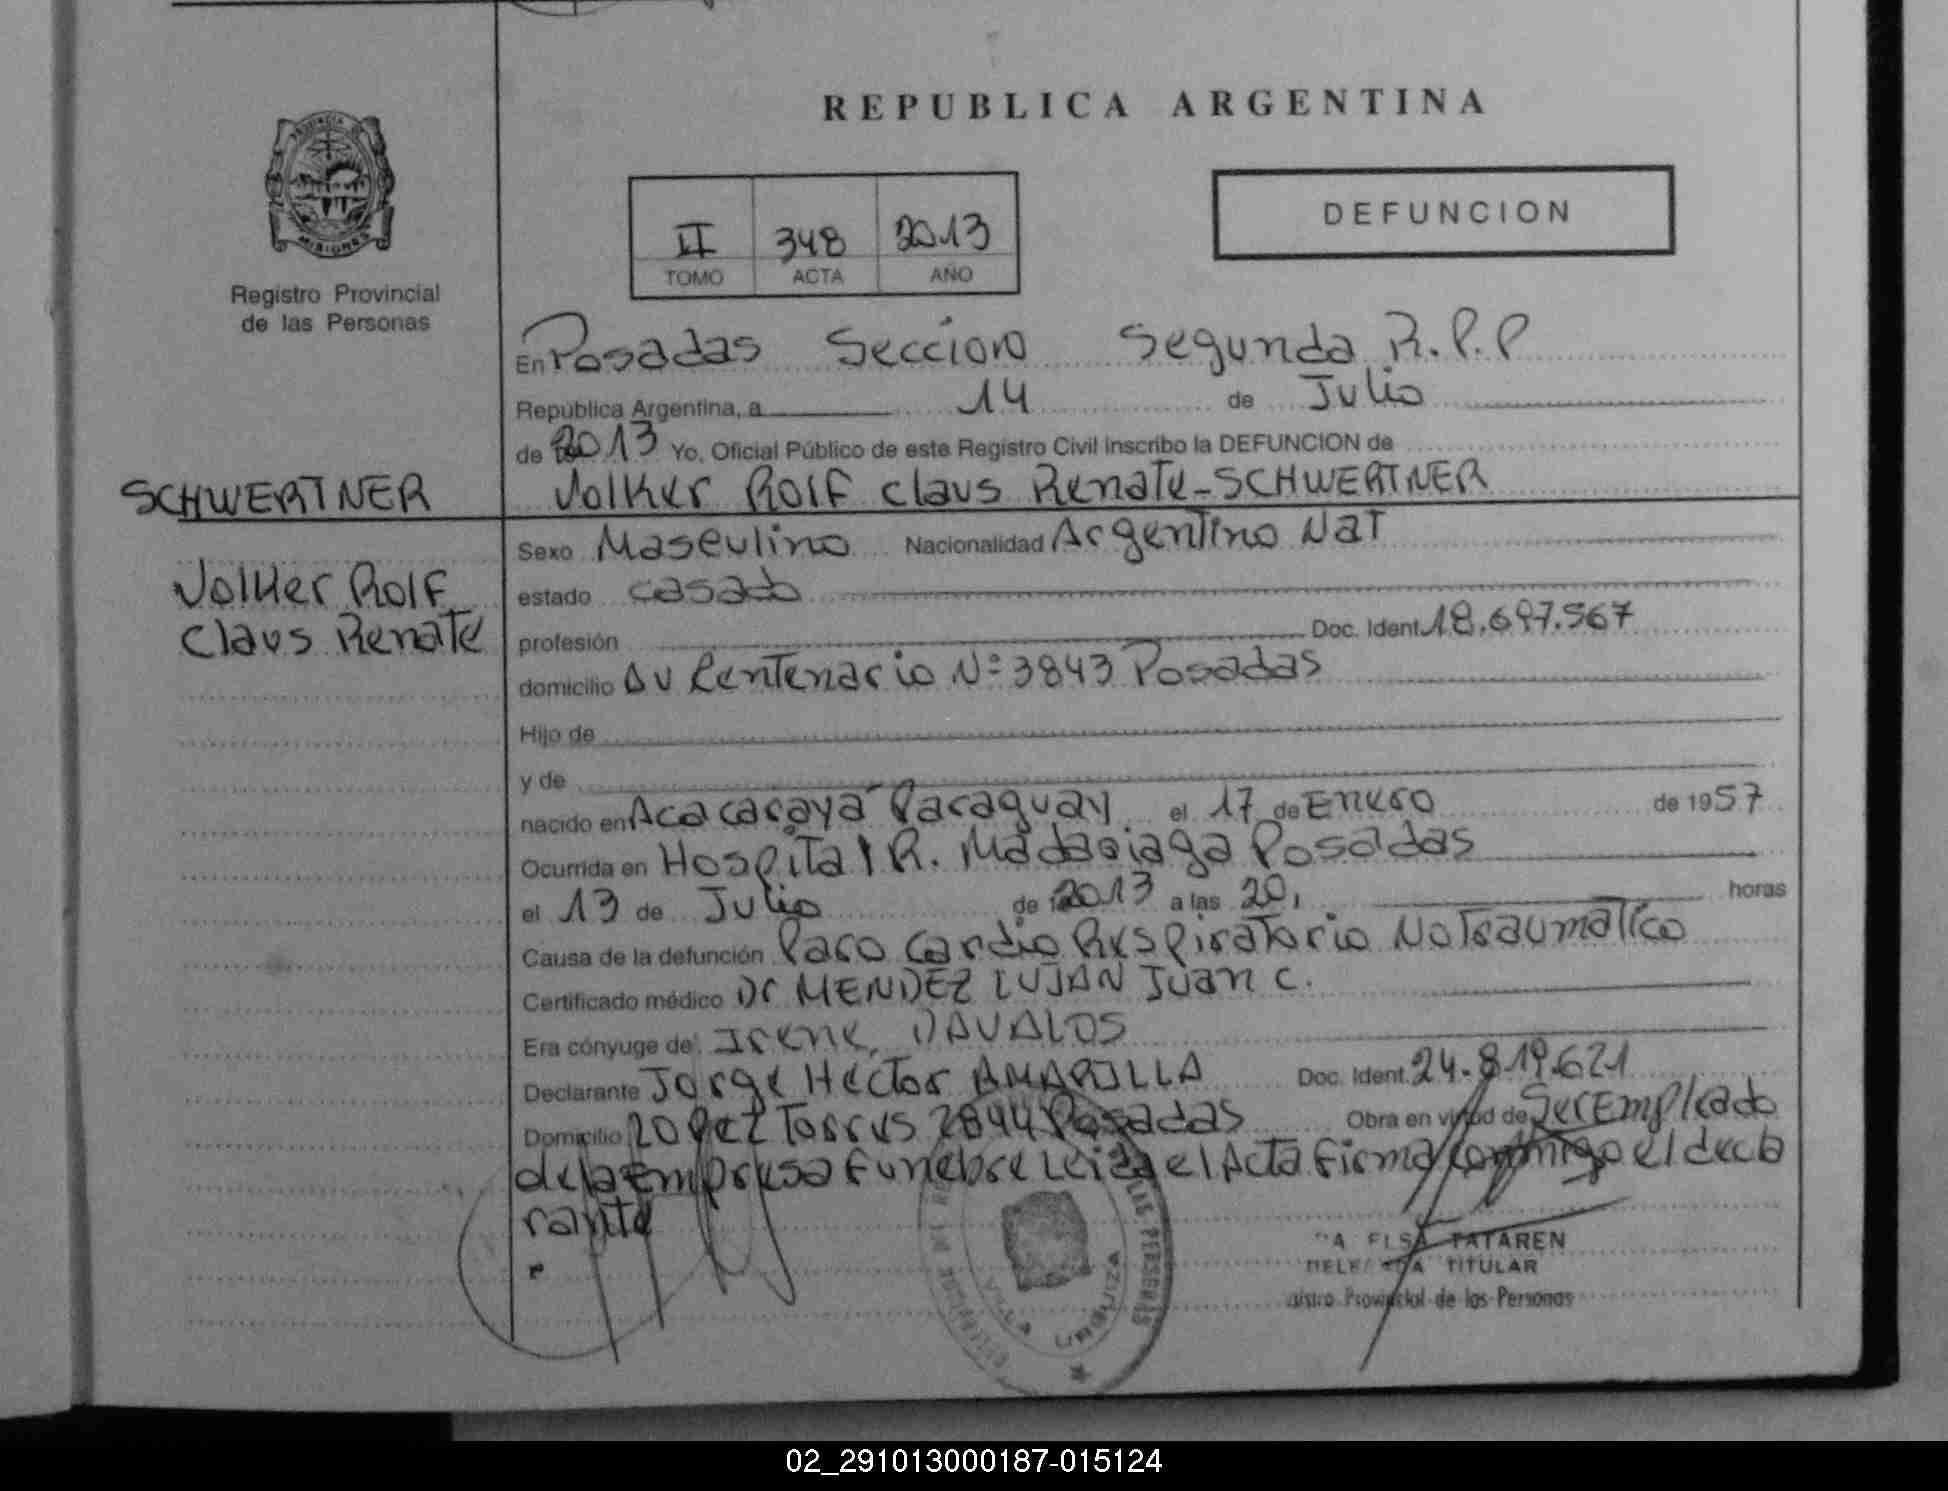 REPUBLICA ARGENTINA
PROVINCIA DE
MISIONES
Registro Provincial
de las Personas
II 348 2013
TOMO ACTA AÑO
DEFUNCION
En Posadas Seccion Segunda R.P.P
República Argentina, a 14 de Julio
de 2013 Yo, Oficial Público de este Registro Civil inscribo la DEFUNCION de
SCHWERTNER
Volker Rolf Claus Renate-SCHWERTNER
Volker Rolf
Claus Renate
Sexo Masculino Nacionalidad Argentino Nat
estado casado
profesión Doc. Ident. 18.697.567
domicilio Av Centenario Nº 3843 Posadas
Hijo de
y de
nacido en Acacaraya Paraguay el 17 de Enero de 1957
Ocurrida en Hospital R. Madariaga Posadas
el 13 de Julio de 2013 a las 20, horas
Causa de la defunción Paro Cardio Respiratorio No Traumatico
Certificado médico Dr MENDEZ LUJAN Juan C.
Era cónyuge de: Irene, DAVALOS
Declarante Jorge Hector AMARILLA Doc. Ident. 24.819.621
Domicilio Lopez Torres 2844 Posadas Obra en virtud de Ser Empleado
de la Empresa Funebre Leida el Acta Firma conmigo el decla
rante
ELSA TATAREN
TITULAR
Provincial de las Personas
02_291013000187-015124